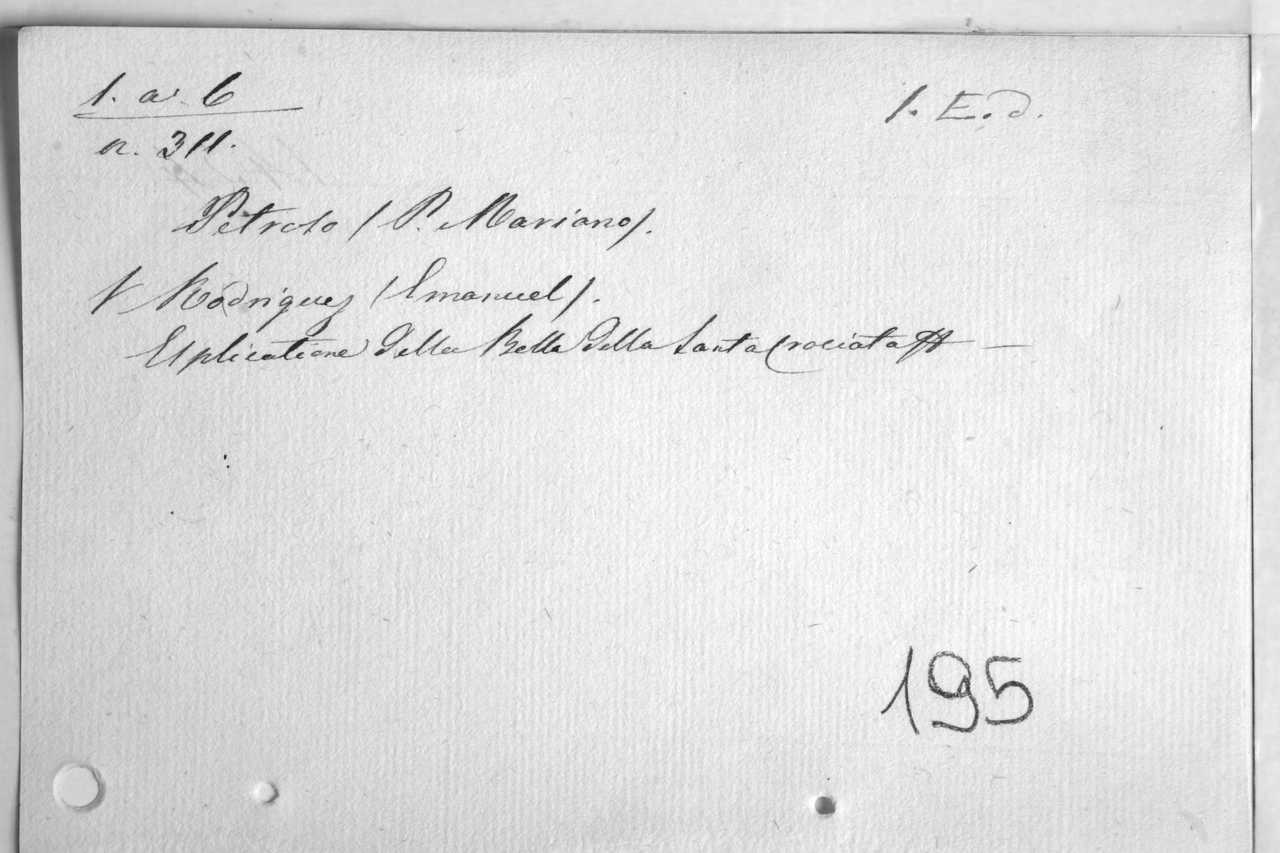 1. a. 6
1. E. d.
n. 311.
Petrolo (P. Mariano).
V Rodriguez (Emanuel).
Esplicatione della Bolla della Santa Crociata
195